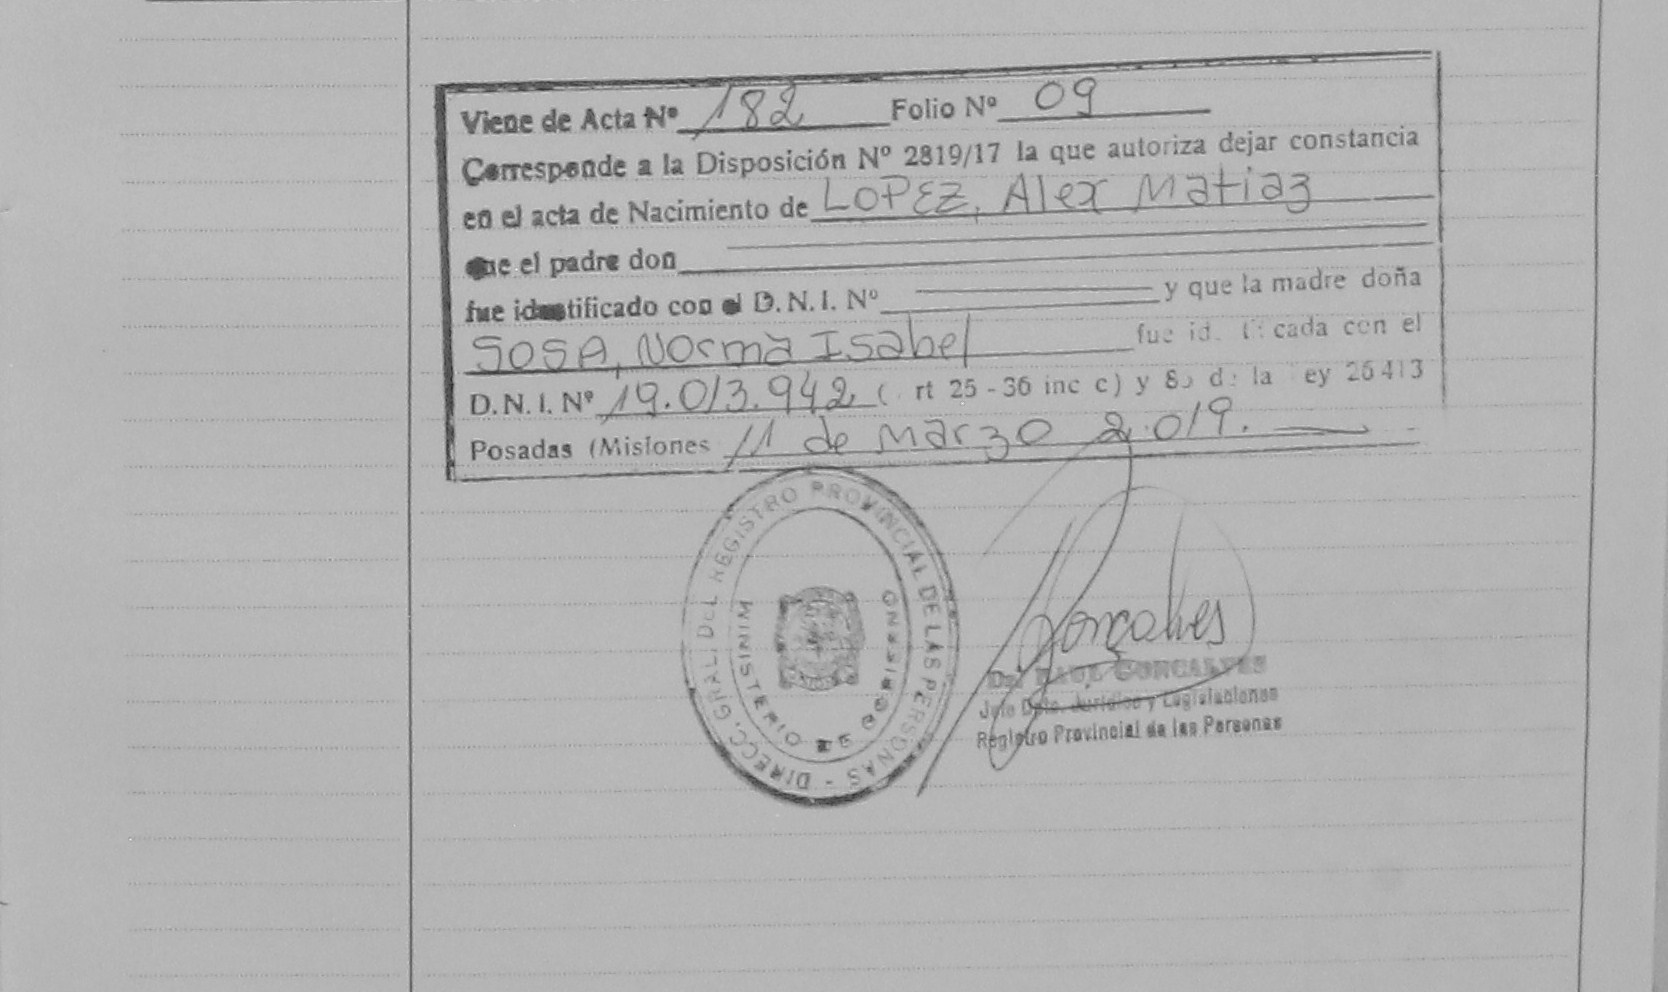 Viene de Acta Nº 182 Folio Nº 09
Corresponde a la Disposición Nº 2819/17 la que autoriza dejar constancia
en el acta de Nacimiento de LOPEZ, Alex Matiaz
que el padre don
fue identificado con el D.N.I. Nº y que la madre doña
SOSA, Norma Isabel fue id cada con el
D.N.I. Nº 19.013.942 ( rt 25-36 inc c) y de la ey 26413
Posadas (Misiones 11 de Marzo 2.019.
DIRECC. GRAL. DEL REGISTRO PROVINCIAL DE LAS PERSONAS -
MINISTERIO DE GOBIERNO
Gonçalves
RAUL GONCALVES
Jefe Dpto. Juridico y Legislaciones
Registro Provincial de las Personas